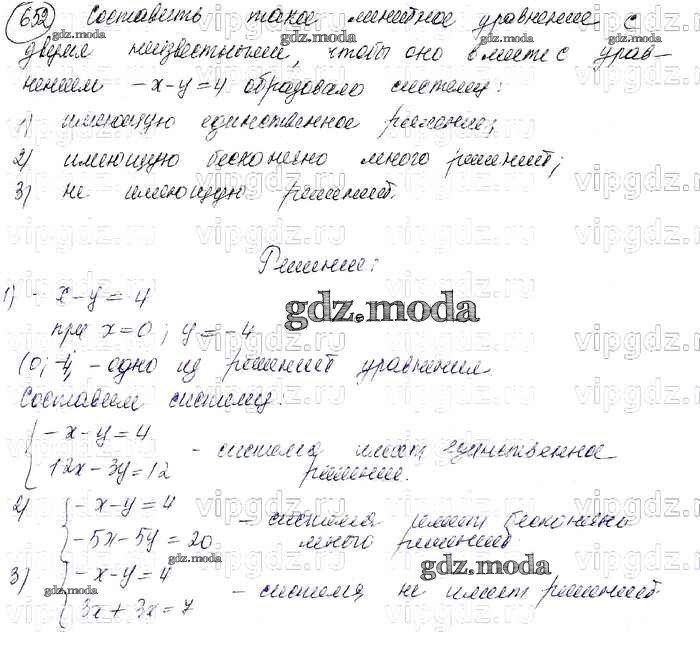 652 Составить такое линейное уравнение с
двумя неизвестными, чтобы оно вместе с урав-
нением -x-y=4 образовало систему:
1) имеющую единственное решение;
2) имеющую бесконечно много решений;
3) не имеющую решений.
Решение:
1) -x-y=4
gdz.moda
при x=0; y=-4
(0; -4, -одно из решений уравнения
Составим систему:
{-x-y=4
12x-3y=12 - система имеет единственное
решение.
2) {-x-y=4
-5x-5y=20 - система имеет бесконечно
много решений
gdz.moda
gdz.moda
3) {-x-y=4
3x+3x=7 - система не имеет решений
gdz.moda
vipgdz.ru